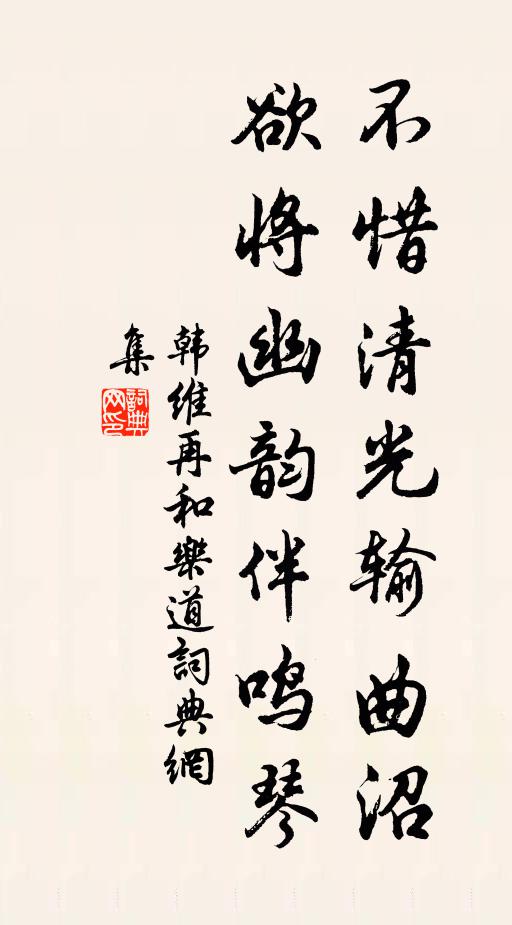 不惜清光输曲沼
欲将幽韵伴鸣琴
韩维再和樂道詞典網
集
詞典网印